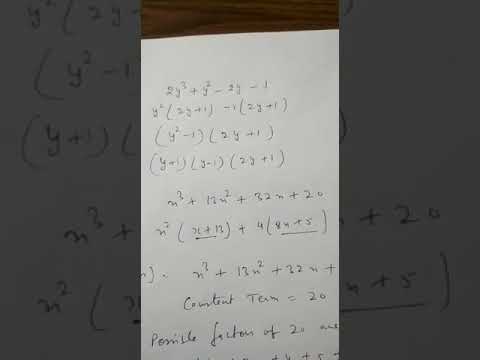 2y³ + y² - 2y - 1
y² (2y+1) - 1 (2y+1)
(y² - 1) (2y+1)
(y+1) (y-1) (2y+1)
x³ + 13x² + 32x + 20
x² (x+13) + 4 (8x+5)
x³ + 13x² + 32x +
Constent Term = 20
Possible factors of 20 are